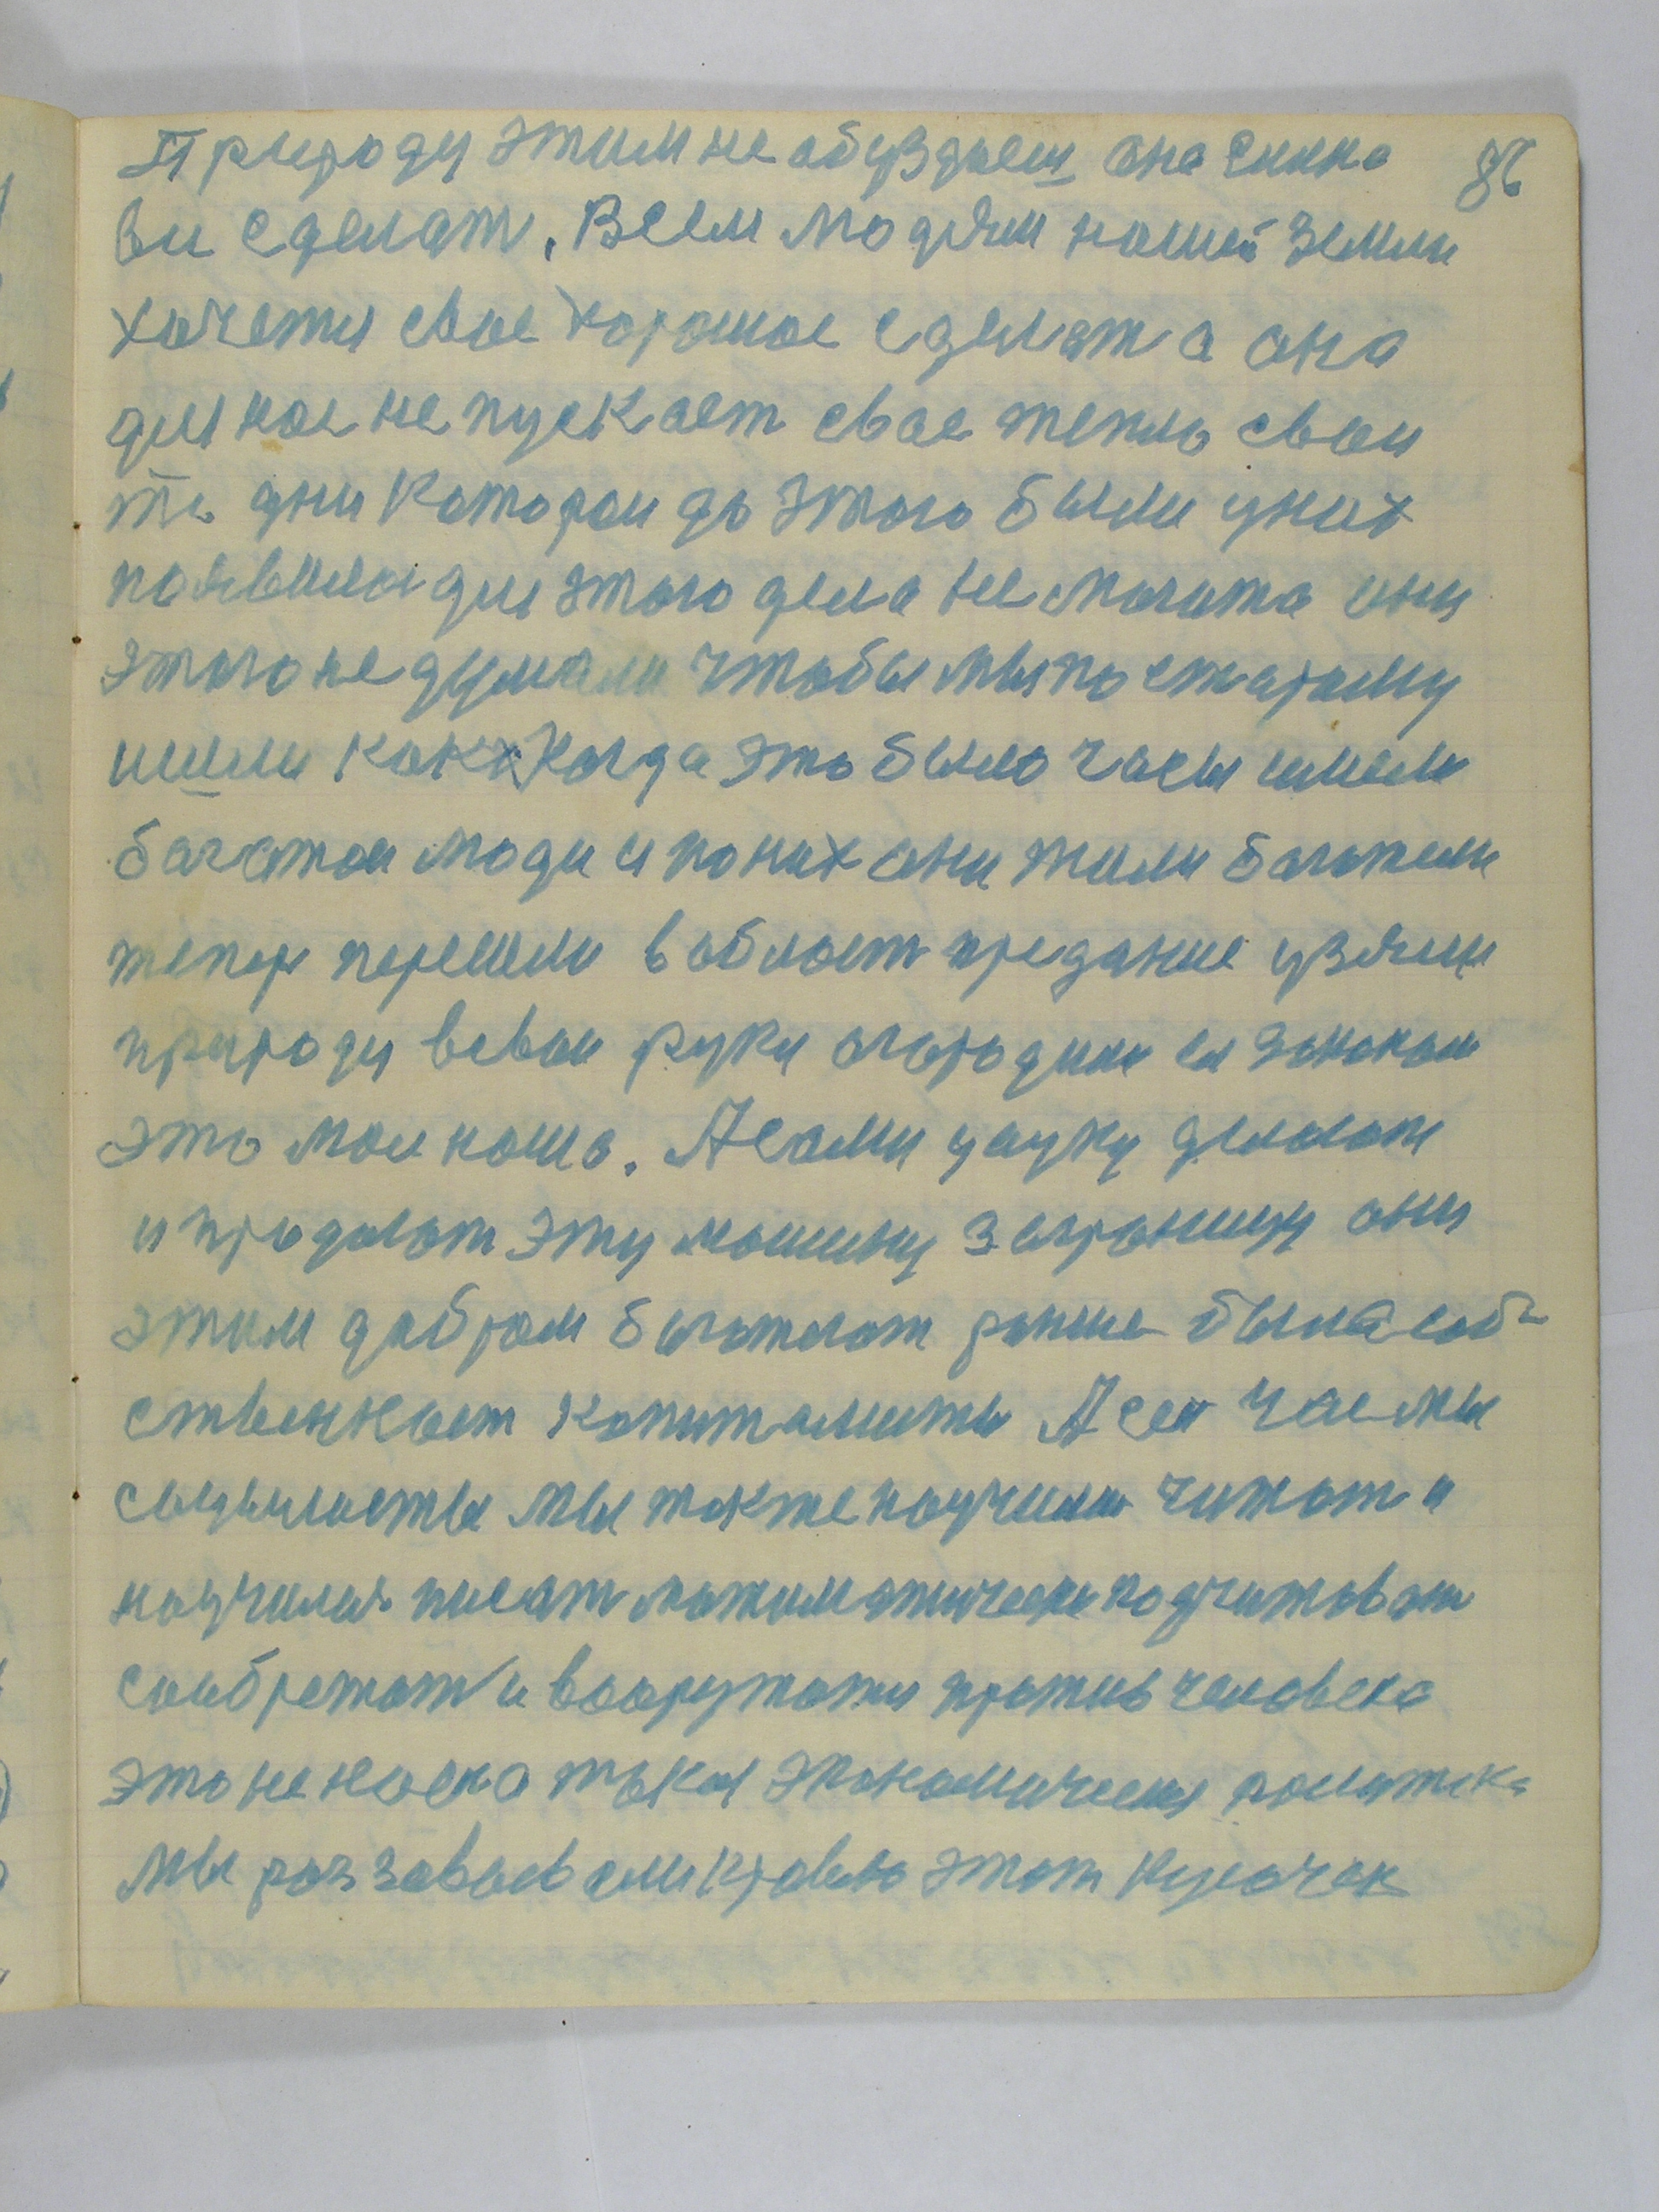 Природу этим не обузdаеш она сиика 86
ви сделат. Всем людям нашей земли
хочетця свое хорошое сделат а она
для нас не пускает свое тепло свои
те дни которои до этого были у них
появилис для этого дела не могита они
этого не думали чтобы мы по старому
ишли как когда это было часы имели
багатои люди и по них они жили богатели
тепер перешли в област предание узяли
природу всвои руки огородили ея законом
это мое наше. А сами уауку делают
и продают эту машину заграницу они
этим добром богатеют ранше была соб-
ственност капиталисты А сей час мы
социлисты мы также научили читат и
научилис писат матиматически подчитоват
сообретат и вооружатця против человека
это не наска така экономическая политика
мы раззавоевали кровью этот кусочек